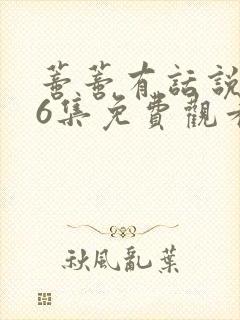 善善有話說
6集免費觀看
秋風亂葉